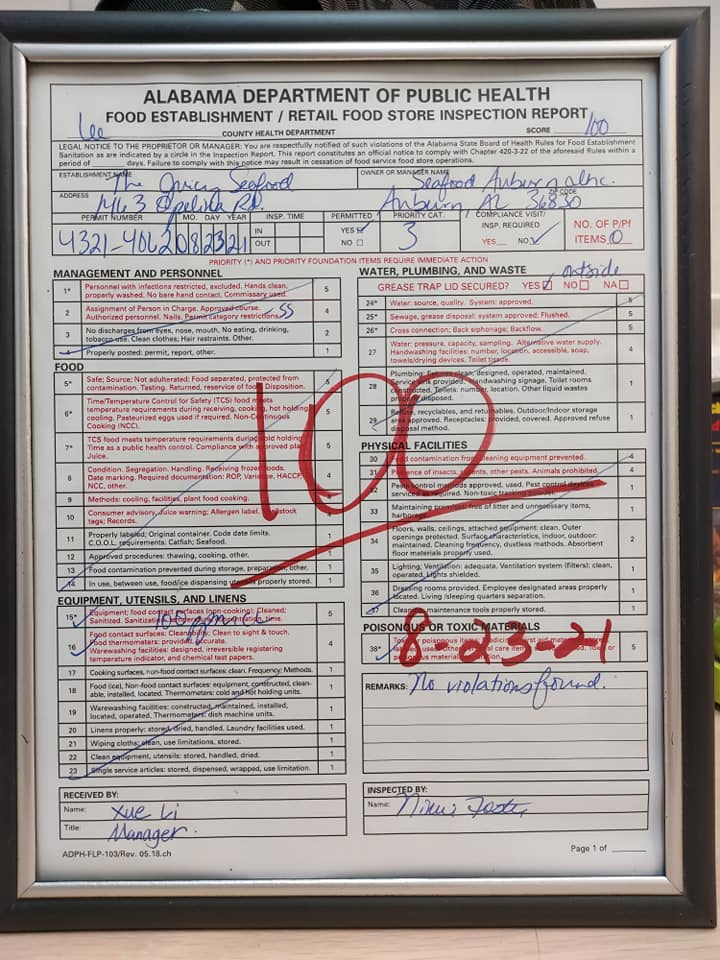 ALABAMA DEPARTMENT OF PUBLIC HEALTH
FOOD ESTABLISHMENT / RETAIL FOOD STORE INSPECTION REPORT
Lee COUNTY HEALTH DEPARTMENT SCORE 100
LEGAL NOTICE TO THE PROPRIETOR OR MANAGER: You are respectfully notified of such violations of the Alabama State Board of Health Rules for Food Establishment
Sanitation as are indicated by a circle in the Inspection Report. This report constitutes an official notice to comply with Chapter 420-3-22 of the aforesaid Rules within a
period of ____ days. Failure to comply with this notice may result in cessation of food service food store operations.
ESTABLISHMENT NAME The Juicy Seafood OWNER OR MANAGER NAME Seafood Auburn Inc.
ADDRESS 1463 Opelika Rd. Auburn AL 36830 ZIP CODE
PERMIT NUMBER MO. DAY YEAR INSP. TIME PERMITTED PRIORITY CAT. COMPLIANCE VISIT/ INSP. REQUIRED NO. OF P/Pf
4321-4062 08 23 21 IN OUT YES NO 3 YES NO ITEMS 0
PRIORITY (*) AND PRIORITY FOUNDATION ITEMS REQUIRE IMMEDIATE ACTION
MANAGEMENT AND PERSONNEL
1* Personnel with infections restricted, excluded. Hands clean, 5
properly washed. No bare hand contact. Commissary used.
2 Assignment of Person in Charge. Approved course. SS 4
Authorized personnel. Nails. Permit category restrictions.
3 No discharges from eyes, nose, mouth. No eating, drinking, 2
tobacco use. Clean clothes; Hair restraints. Other.
4 Properly posted: permit, report, other. 1
FOOD
5* Safe; Source; Not adulterated; Food separated, protected from 5
contamination. Testing. Returned, reservice of food. Disposition.
6* Time/Temperature Control for Safety (TCS) food meets 5
temperature requirements during receiving, cooking, hot holding,
cooling. Pasteurized eggs used if required. Non-Continuous
Cooking (NCC).
7* TCS food meets temperature requirements during cold holding. 5
Time as a public health control. Compliance with approved plan
Juice.
8 Condition. Segregation. Handling. Receiving frozen foods. 4
Date marking. Required documentation: ROP, Variance, HACCP,
NCC, other.
9 Methods: cooling, facilities, plant food cooking.
10 Consumer advisory. Juice warning; Allergen label. Livestock
tags; Records.
11 Properly labeled; Original container. Code date limits. 1
C.O.O.L. requirements: Catfish; Seafood.
12 Approved procedures: thawing, cooking, other. 1
13 Food contamination prevented during storage, preparation, other. 1
14 In use, between use, food/ice dispensing utensils properly stored. 1
EQUIPMENT, UTENSILS, AND LINENS
15* Equipment; food contact surfaces (non-cooking): Cleaned; 5
Sanitized. Sanitization: time.
16 Food contact surfaces: Cleanability; Clean to sight & touch. 4
Food thermometers: provided, accurate.
Warewashing facilities: designed, irreversible registering
temperature indicator, and chemical test papers.
17 Cooking surfaces, non-food contact surfaces: clean, Frequency; Methods. 1
18 Food (ice), Non-food contact surfaces: equipment, constructed, clean- 1
able, installed, located. Thermometers: cold and hot holding units.
19 Warewashing facilities: constructed, maintained, installed, 1
located, operated. Thermometers: dish machine units.
20 Linens properly: stored, dried, handled. Laundry facilities used. 1
21 Wiping cloths: clean, use limitations, stored. 1
22 Clean equipment, utensils: stored, handled, dried. 1
23 Single service articles: stored, dispensed, wrapped, use limitation. 1
RECEIVED BY:
Name: Xue Li
Title: Manager.
ADPH-FLP-103/Rev. 05.18.ch
WATER, PLUMBING, AND WASTE outside
GREASE TRAP LID SECURED? YES NO NA
24* Water: source, quality. System: approved. 5
25* Sewage, grease disposal: system approved; Flushed. 5
26* Cross connection; Back siphonage; Backflow. 5
27 Water: pressure, capacity, sampling. Alternative water supply. 4
Handwashing facilities: number, location, accessible, soap,
towels/drying devices. Toilet tissue.
28 Plumbing: fixtures clean, designed, operated, maintained. 1
Service sink provided. Handwashing signage. Toilet rooms
constructed. Toilets: number, location. Other liquid wastes
properly disposed.
29 Refuse, recyclables, and returnables. Outdoor/Indoor storage 1
area approved. Receptacles: provided, covered. Approved refuse
disposal method.
PHYSICAL FACILITIES
30 Food contamination from cleaning equipment prevented. 4
31 Presence of insects, rodents, other pests. Animals prohibited. 4
32 Pests control methods approved, used. Pest control devices 1
serviced as required. Non-toxic tracking powder.
33 Maintaining premises: free of litter and unnecessary items, 1
harborage.
34 Floors, walls, ceilings, attached equipment: clean. Outer 2
openings protected. Surface characteristics, indoor, outdoor:
maintained. Cleaning frequency, dustless methods. Absorbent
floor materials properly used.
35 Lighting: Ventilation: adequate. Ventilation system (filters): clean, 1
operated. Lights shielded.
36 Dressing rooms provided. Employee designated areas properly 1
located. Living /sleeping quarters separation.
37 Cleaning maintenance tools properly stored. 1
POISONOUS OR TOXIC MATERIALS
38* 5
REMARKS: No violations found.
INSPECTED BY:
Name:
Page 1 of ____
100
8-23-21